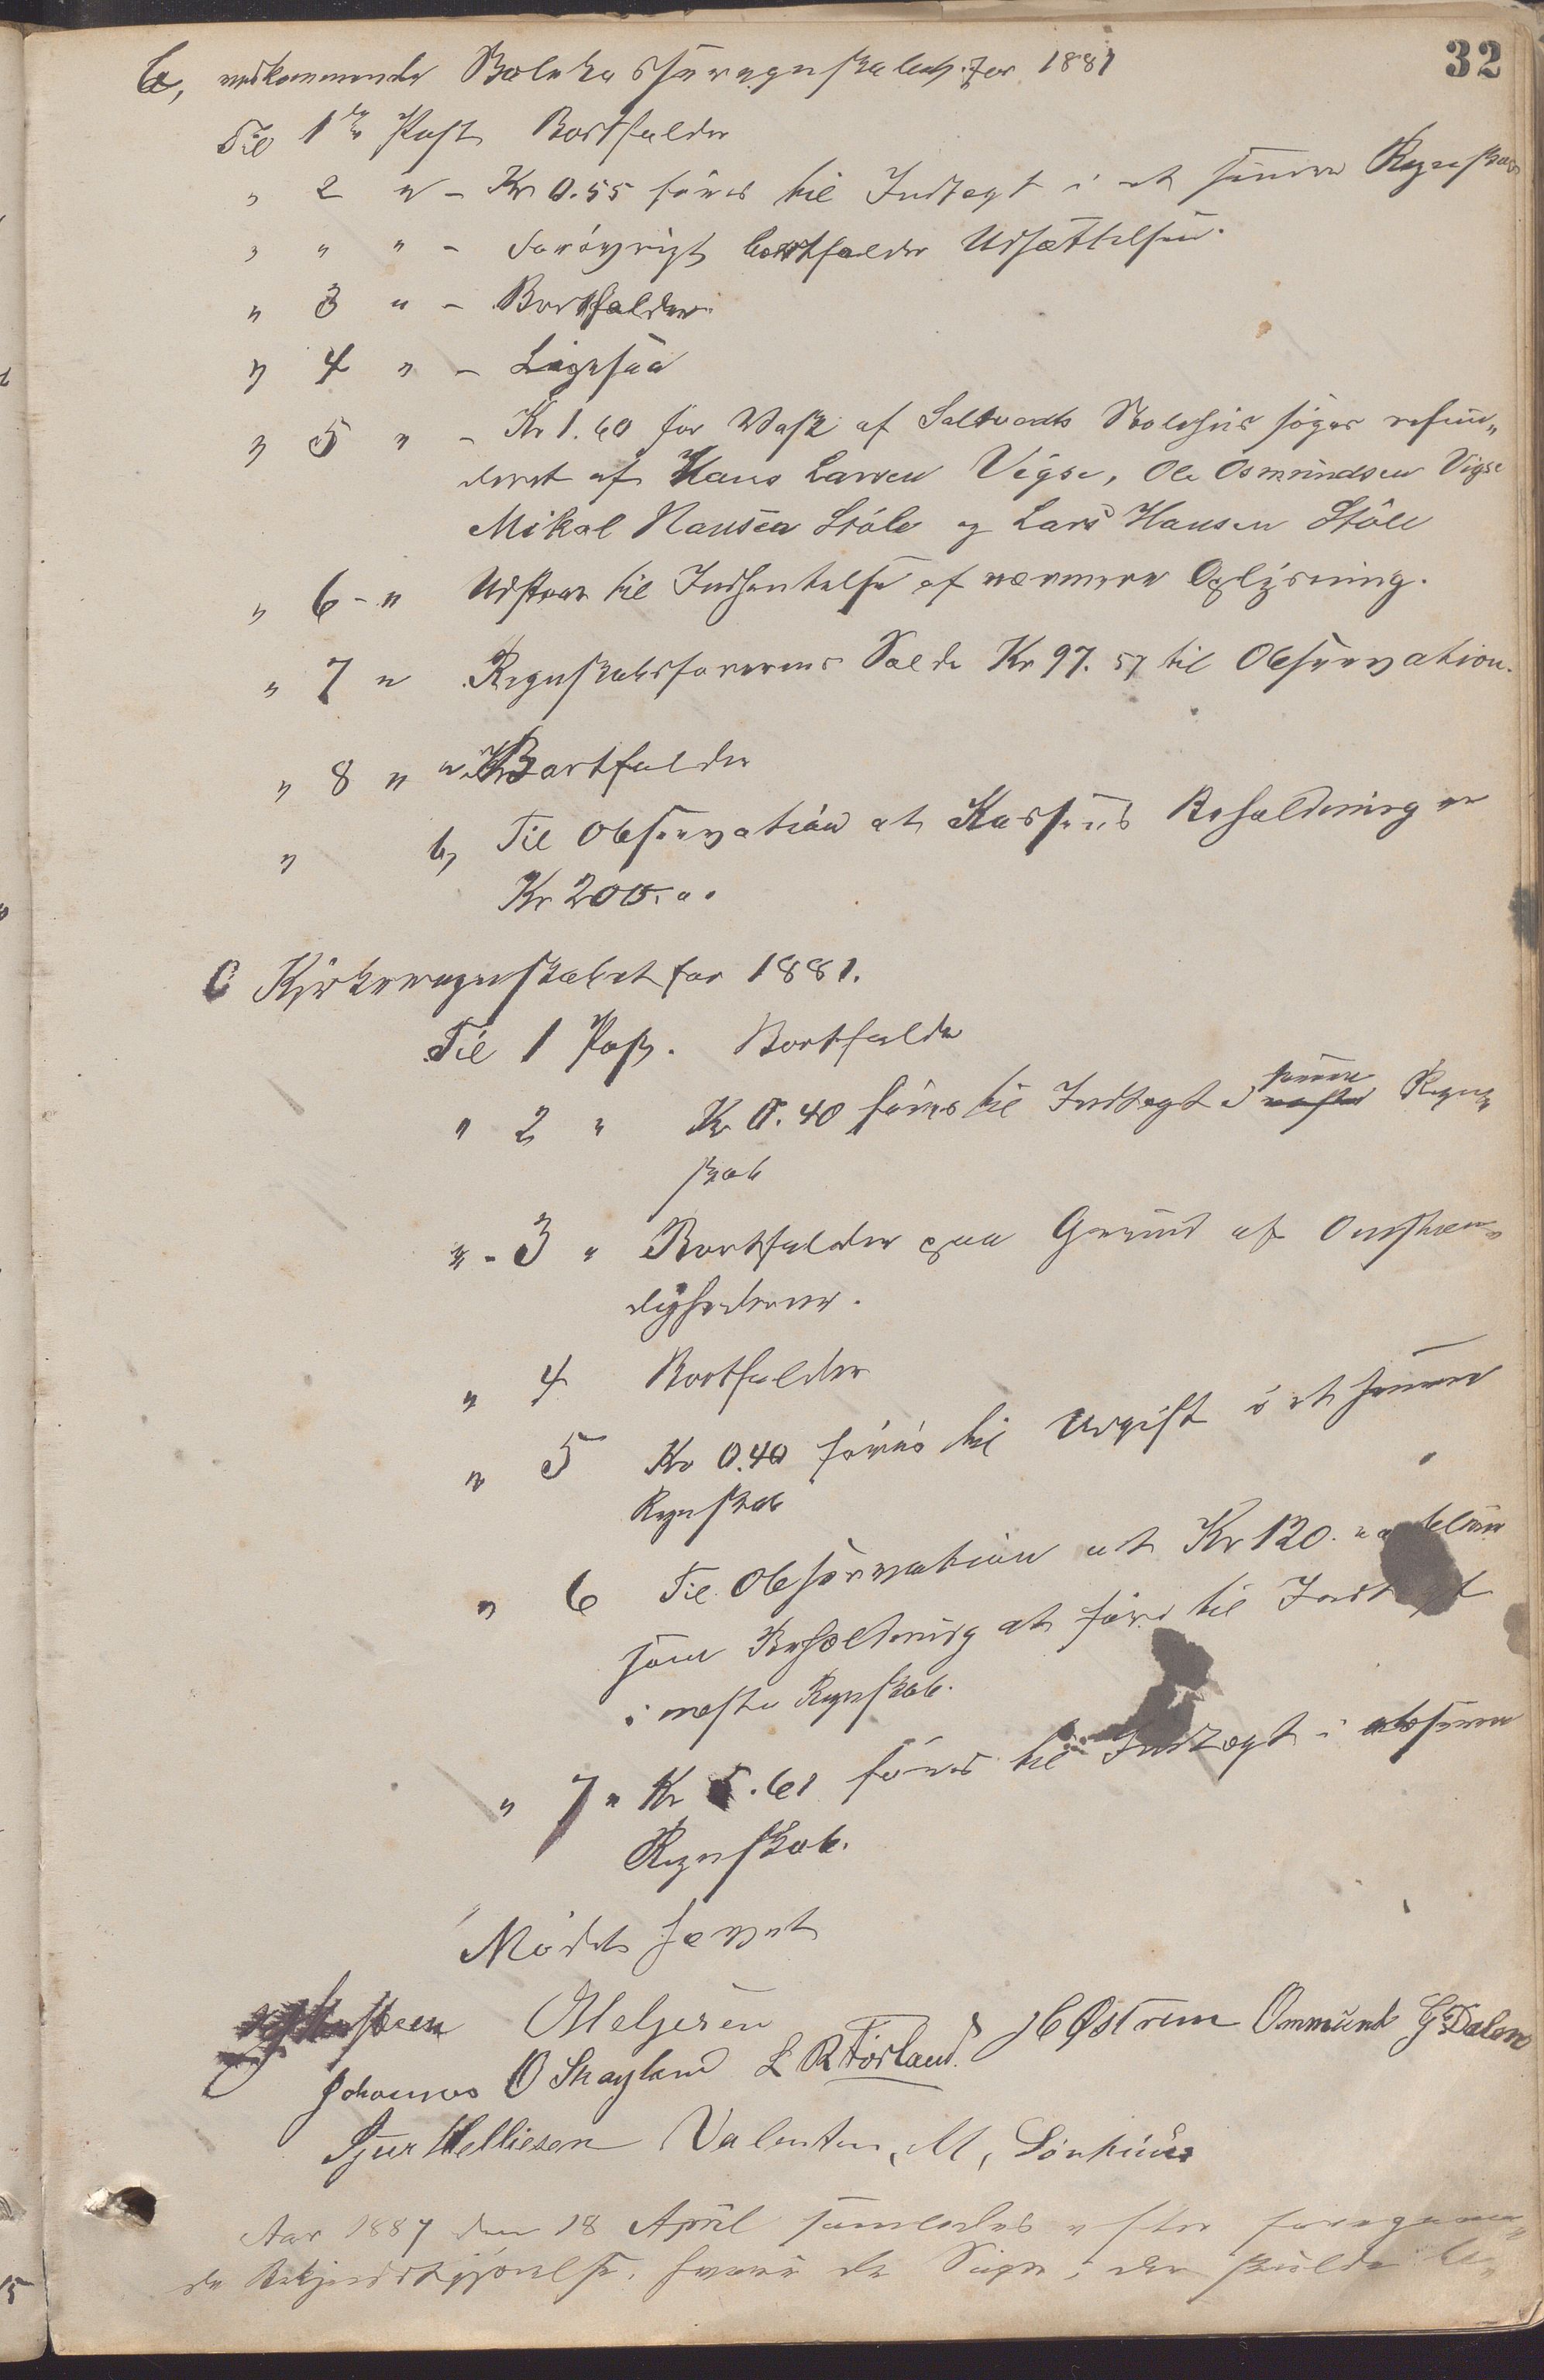 32
b, vedkommende Skolekasseregnskabet for 1881
Til 1ste Post Bortfalder
" 2 " - Kr 0.55 föres til Indtægt i et senere Regnskab
" " " - Forövrigt bortfalder Udsættelsen.
" 3 " - Bortfalder
" 4 " - Ligesaa
" 5 " - Kr 1.60 for Vask af Saltvedts Skolehus söges refun„
deret af Hans Larsen Vigse, Ole Osmundsen Vigse
Mikal Hansen Stöle og Lars Hansen Stöle
" 6 - " Udstaar til Indhentelse af nærmere Oplysning.
" 7 " Regnskabsförerens Saldo Kr 97.57 til Observation.
" 8 " a, Bortfalder
" b, Til Observation at Kassens Beholdning er
Kr 200. " "
C Kirkeregnskabet for 1881.
Til 1 Post. Bortfalder
" 2 " Kr 0.40 föres til Indtægt i senere næste Regn„
skab
" - 3 " Bortfalder paa Grund af Omstæn„
dighederne.
" 4 Bortfalder
" 5 Kr 0.40 föres til Udgift i et senere
Regnskab
" 6 Til Observation at Kr 120. " "
som Beholdning at före til Indtægt
i næste Regnskab.
" 7 " Kr 5.61 föres til Indtægt i et senere
Regnskab.
Mödet hævet
O Helgesen H Østrem Ommund G. Dalen
Johannes O Skagland L R Förland
Sjur Helliesen Valentin, M, Sönhuus
Aar 1887 den 18 April samledes efter foregaaen„
de Bekjendtgjörelse, Herreds de Valgte, der skulde be„